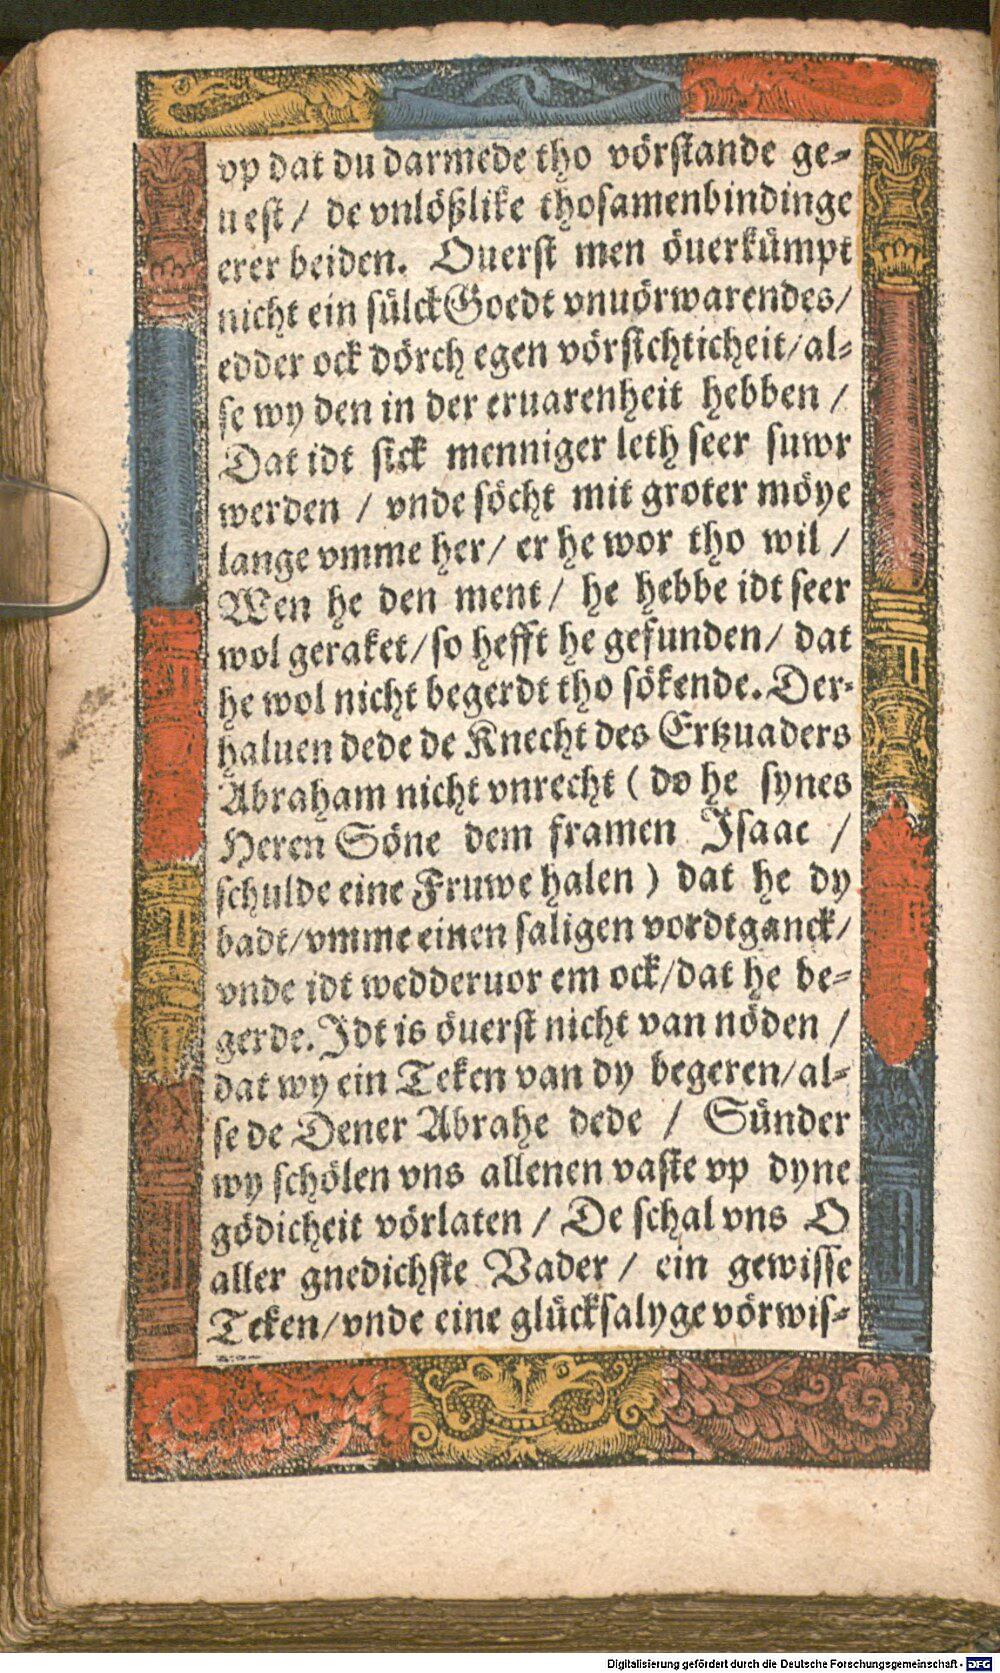 vp dat du darmede tho vörstande ge-
uest / de vnlößlike thosamenbindinge
erer beiden. Ouerst men öuerkümpt
nicht ein sülck Goedt vnuörwarendes /
edder ock dörch egen vörsichticheit / al-
se wy den in der eruarenheit hebben /
Dat idt sick menniger leth seer suwr
werden / vnde söcht mit groter möye
lange vmme her / er he wor tho wil /
Wen he den ment / he hebbe idt seer
wol geraket / so hefft he gefunden / dat
he wol nicht begerdt tho sökende. Der-
haluen dede de Knecht des Ertzuaders
Abraham nicht vnrecht ( do he synes
Heren Söne dem framen Isaac /
schulde eine Fruwe halen ) dat he dy
badt / vmme einen saligen vordtganck /
vnde idt wedderuor em ock / dat he be-
gerde. Idt is öuerst nicht van nöden /
dat wy ein Teken van dy begeren / al-
se de Dener Abrahe dede / Sünder
wy schölen vns allenen vaste vp dyne
gödicheit vörlaten / De schal vns O
aller gnedichste Vader / ein gewisse
Teken / vnde eine glücksalyge vörwis-
Digitalisierung gefördert durch die Deutsche Forschungsgemeinschaft - DFG